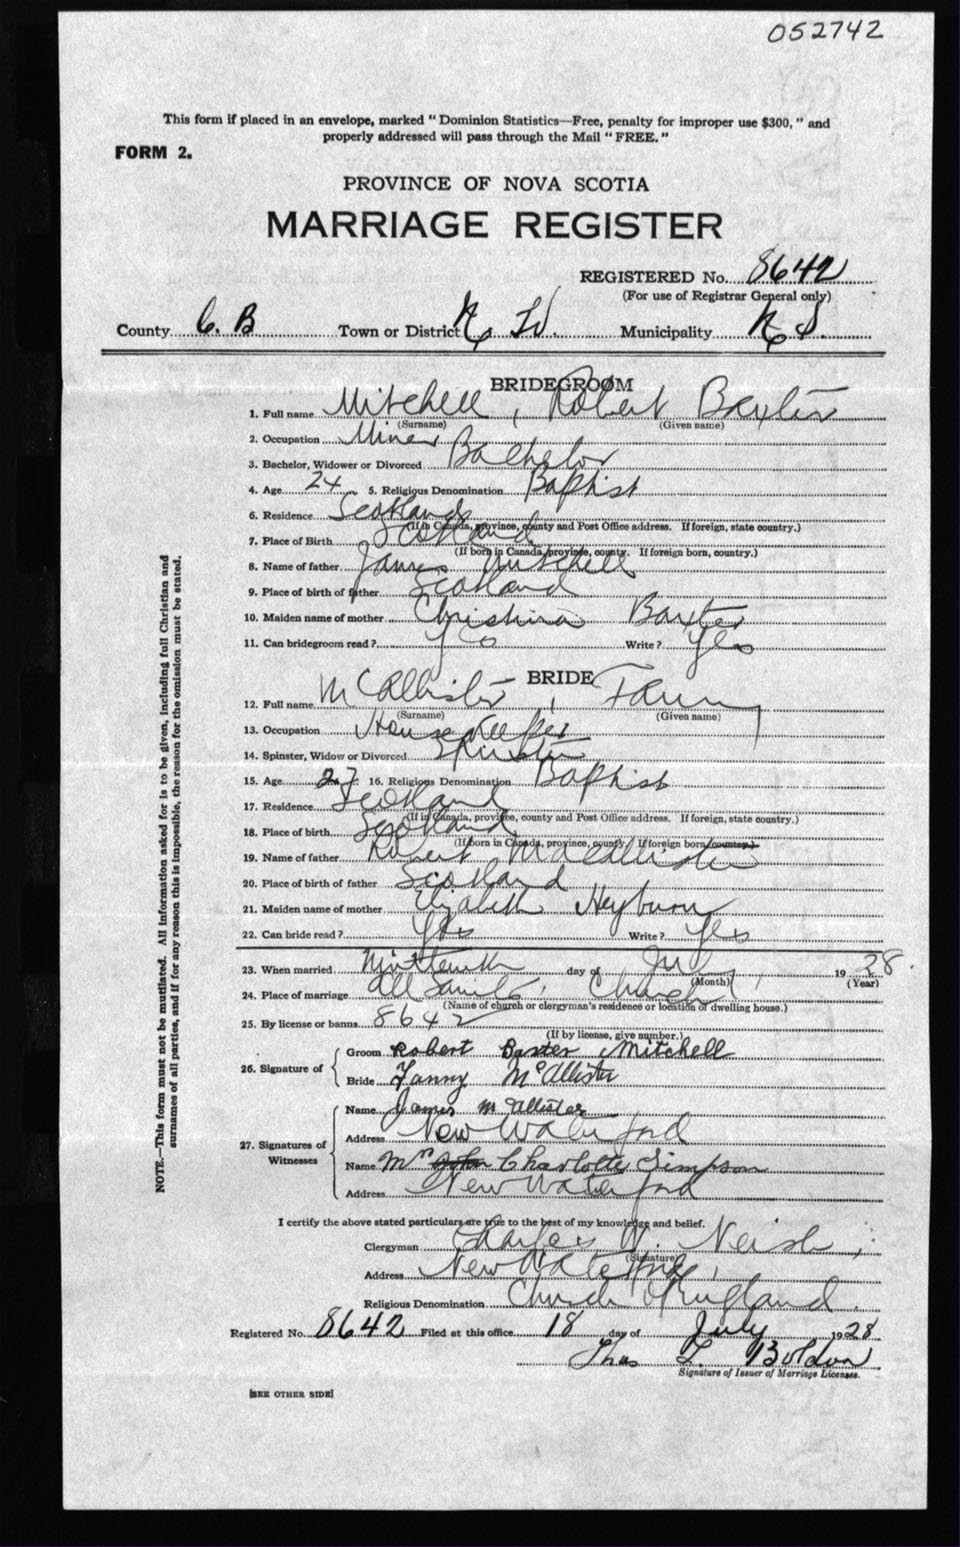 052742
This form if placed in an envelope, marked "Dominion Statistics—Free, penalty for improper use $300," and
properly addressed will pass through the Mail "FREE."
FORM 2.
PROVINCE OF NOVA SCOTIA
MARRIAGE REGISTER
REGISTERED No. 8642
(For use of Registrar General only)
County C. B Town or District N. W. Municipality N. S.
BRIDEGROOM
1. Full name Mitchell, Robert Baxter
(Surname) (Given name)
2. Occupation Miner
3. Bachelor, Widower or Divorced Bachelor
4. Age 24 5. Religious Denomination Baptist
6. Residence Scotland
(If in Canada, province, county and Post Office address. If foreign, state country.)
7. Place of Birth Scotland
(If born in Canada, province, county. If foreign born, country.)
8. Name of father James Mitchell
9. Place of birth of father Scotland
10. Maiden name of mother Christina Baxter
11. Can bridegroom read? Yes Write? Yes
BRIDE
12. Full name McAllister, Fanny
(Surname) (Given name)
13. Occupation House Keeper
14. Spinster, Widow or Divorced Spinster
15. Age 27 16. Religious Denomination Baptist
17. Residence Scotland
(If in Canada, province, county and Post Office address. If foreign, state country.)
18. Place of birth Scotland
(If born in Canada, province, county. If foreign born, country.)
19. Name of father Robert McAllister
20. Place of birth of father Scotland
21. Maiden name of mother Elizabeth Heyburn
22. Can bride read? Yes Write? Yes
23. When married Nineteenth day of July 1928.
(Month) (Year)
24. Place of marriage All Saints' Church
(Name of church or clergyman's residence or location of dwelling house.)
25. By license or banns 8642
(If by license, give number.)
26. Signature of Groom Robert Baxter Mitchell
Bride Fanny McAllister
27. Signatures of Witnesses Name James McAllister
Address New Waterford
Name Mrs John Charlotte Simpson
Address New Waterford
I certify the above stated particulars are true to the best of my knowledge and belief.
Clergyman Charles W. Neish,
(Signature)
Address New Waterford,
Religious Denomination Church of England.
Registered No. 8642 Filed at this office 18 day of July 1928
Thos L. Boldon
Signature of Issuer of Marriage Licenses.
[SEE OTHER SIDE]
NOTE.—This form must not be mutilated. All information asked for is to be given, including full Christian and
surnames of all parties, and if for any reason this is impossible, the reason for the omission must be stated.